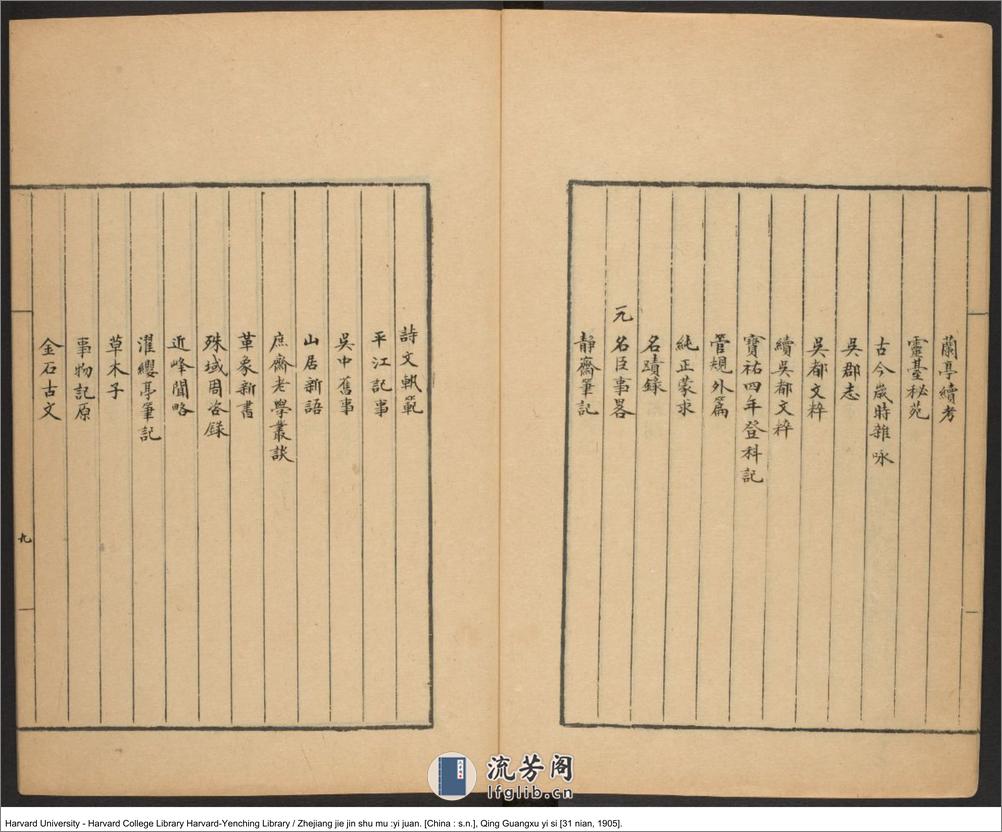 蘭亭續考
靈臺秘苑
古今歲時雜咏
吳郡志
吳都文粹
續吳都文粹
寶祐四年登科記
管規外篇
純正蒙求
名蹟錄
元 名臣事畧
靜齋筆記
詩文軌範
平江記事
吳中舊事
山居新語
庶齋老學叢談
革象新書
殊域周咨錄
近峰聞略
濯纓亭筆記
草木子
事物記原
金石古文
九
流芳阁
lfglib.cn
Harvard University - Harvard College Library Harvard-Yenching Library / Zhejiang jie jin shu mu :yi juan. [China : s.n.], Qing Guangxu yi si [31 nian, 1905].